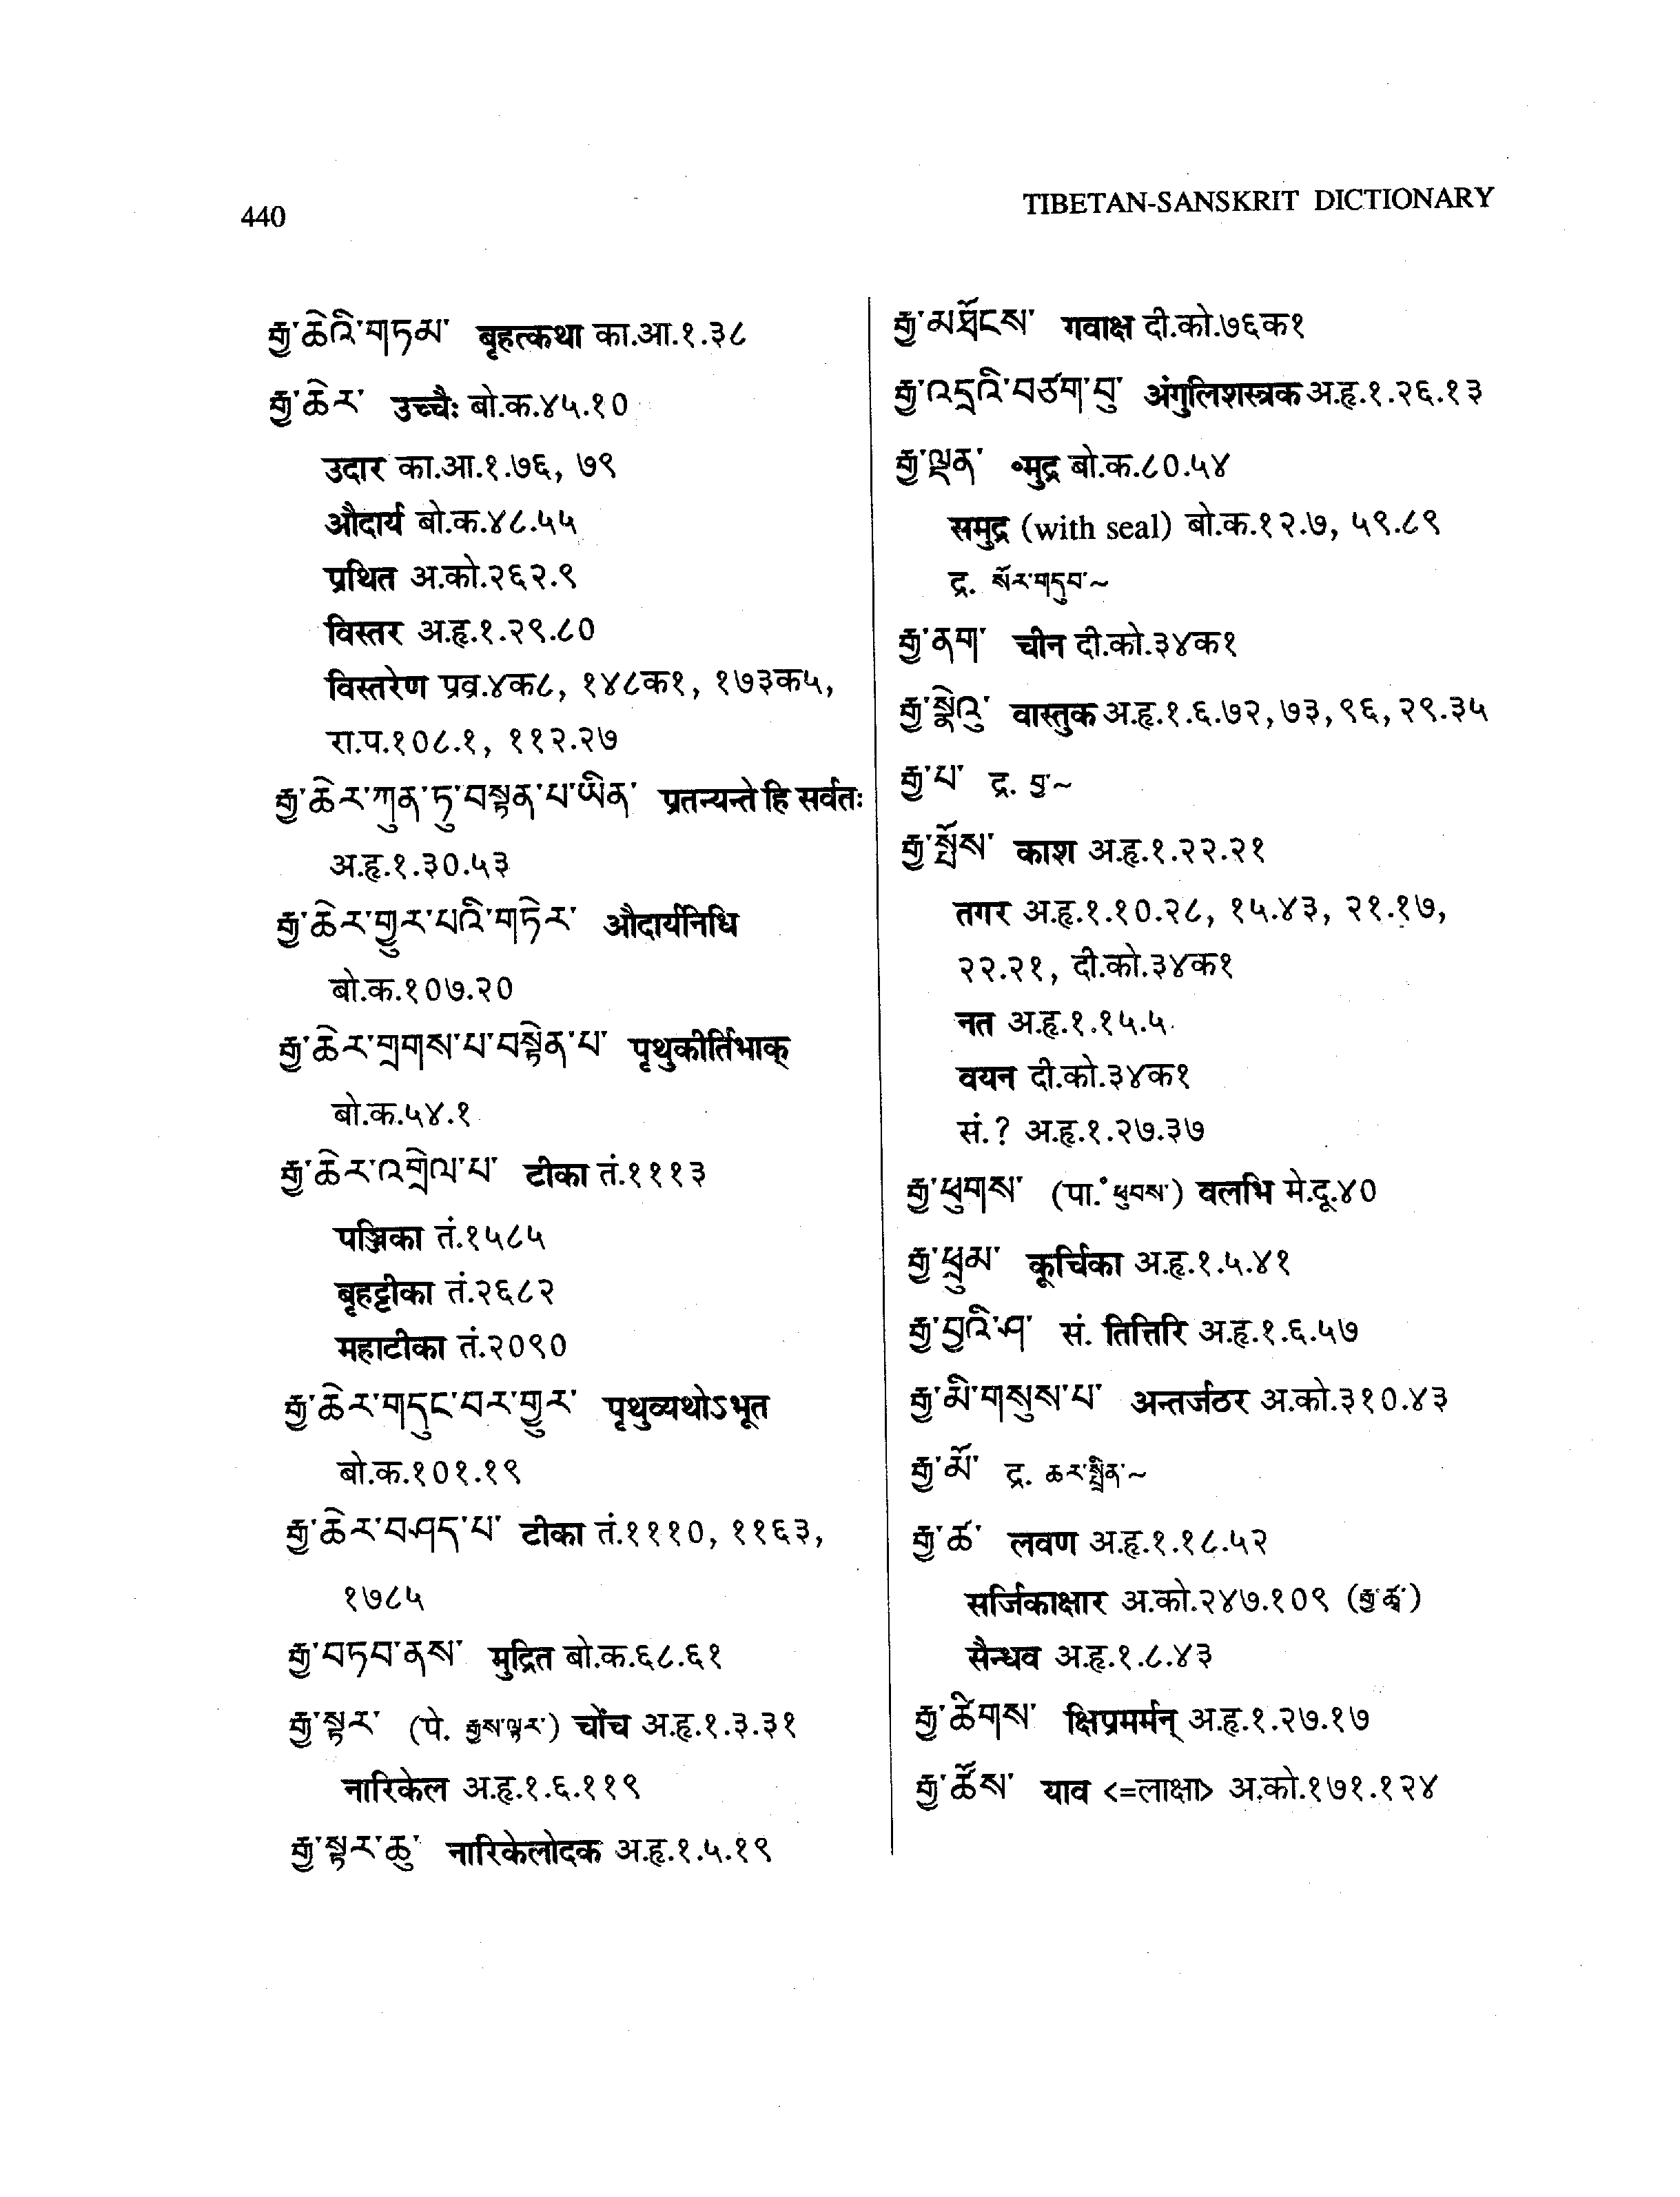 440
TIBETAN-SANSKRIT DICTIONARY
རྒྱ་ཆེའི་གཏམ་ बृहत्कथा का.आ.१.३८
རྒྱ་ཆེར་ उच्चैः बो.क.४५.१०
उदार का.आ.१.७६, ७९
औदार्य बो.क.४८.५५
प्रथित अ.को.२६२.९
विस्तर अ.हृ.१.२९.८०
विस्तरेण प्रव्र.४क८, १४८क१, १७३क५,
रा.प.१०८.१, ११२.२७
རྒྱ་ཆེར་ཀུན་ཏུ་བསྟན་པ་ཡིན་ प्रतन्यन्ते हि सर्वतः
अ.हृ.१.३०.५३
རྒྱ་ཆེར་གྱུར་པའི་གཏེར་ औदार्यनिधि
बो.क.१०७.२०
རྒྱ་ཆེར་གྲགས་པ་བསྟེན་པ་ पृथुकीर्तिभाक्
बो.क.५४.१
རྒྱ་ཆེར་འགྲེལ་པ་ टीका तं.१११३
पञ्जिका तं.१५८५
बृहट्टीका तं.२६८२
महाटीका तं.२०९०
རྒྱ་ཆེར་གདུང་བར་གྱུར་ पृथुव्यथोऽभूत
बो.क.१०१.१९
རྒྱ་ཆེར་བཤད་པ་ टीका तं.१११०, ११६३,
१७८५
རྒྱ་བཏབ་ནས་ मुद्रित बो.क.६८.६१
རྒྱ་སྟར་ (पे. རྒྱས་ལྟར་) चोंच अ.हृ.१.३.३१
नारिकेल अ.हृ.१.६.११९
རྒྱ་སྟར་ཆུ་ नारिकेलोदक अ.हृ.१.५.१९
རྒྱ་མཐོངས་ गवाक्ष दी.को.७६क१
རྒྱ་འདྲའི་བཙག་བུ་ अंगुलिशस्त्रक अ.हृ.१.२६.१३
རྒྱ་ལྡན་ ॰मुद्र बो.क.८०.५४
समुद्र (with seal) बो.क.१२.७, ५९.८९
द्र. སོར་གདུབ་~
རྒྱ་ནག་ चीन दी.को.३४क१
རྒྱ་སྣེའུ་ वास्तुक अ.हृ.१.६.७२, ७३, ९६, २९.३५
རྒྱ་པ་ द्र. བྲ་~
རྒྱ་སྤོས་ काश अ.हृ.१.२२.२१
तगर अ.हृ.१.१०.२८, १५.४३, २१.१७,
२२.२१, दी.को.३४क१
नत अ.हृ.१.१५.५
वयन दी.को.३४क१
सं.? अ.हृ.१.२७.३७
རྒྱ་ཕུགས་ (पा.॰ ཕུབས་) वलभि मे.दू.४०
རྒྱ་ཕྲུམ་ कूर्चिका अ.हृ.१.५.४१
རྒྱ་བྱའི་ཤ་ सं. तित्तिरि अ.हृ.१.६.५७
རྒྱ་མི་གསུས་པ་ अन्तर्जठर अ.को.३१०.४३
རྒྱ་མོ་ द्र. ཆར་སྤྲིན་~
རྒྱ་ཚ་ लवण अ.हृ.१.१८.५२
सर्जिकाक्षार अ.को.२४७.१०९ (རྒྱ་ཚྭ་)
सैन्धव अ.हृ.१.८.४३
རྒྱ་ཚིགས་ क्षिप्रमर्मन् अ.हृ.१.२७.१७
རྒྱ་ཚོས་ याव <=लाक्षा> अ.को.१७१.१२४